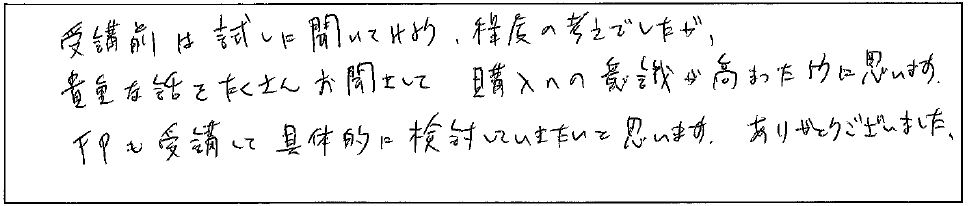 受講前は試しに聞いてみよう、程度の考えでしたが、
貴重な話をたくさんお聞きして 購入への意識が高まった
FPも受講して具体的に検討していきたいと思います。ありがとうございました、